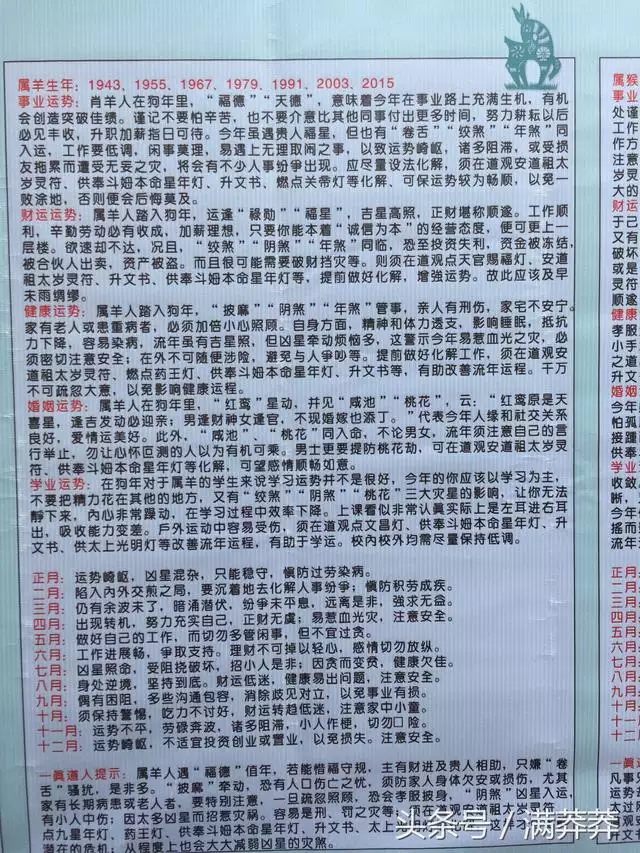 属羊生年：1943、1955、1967、1979、1991、2003、2015
事业运势：肖羊人在狗年里，“福德”“天德”，意味着今年在事业路上充满生机，有机
会创造突破佳绩。谨记不要怕辛苦，也不要介意比其他同事付出更多时间，努力耕耘以后
必见丰收，升职加薪指日可待。今年虽遇贵人福星，但也有“卷舌”“绞煞”“年煞”同
入运，工作要低调，闲事莫理，易遇上无理取闹之事，以致运势崎岖，诸多阻滞，或受损
友拖累而遭受无妄之灾，将会有不少人事纷争出现。应尽量设法化解，须在道观安道祖太
岁灵符、供奉斗姆本命星年灯、升文书、燃点关帝灯等化解、可保运势较为畅顺，以免一
败涂地，否则便会后悔莫及。
财运运势：属羊人踏入狗年，运逢“禄勋”“福星”，吉星高照，正财堪称顺遂。工作顺
利，辛勤劳动必有收成，加薪理想，只要你能本着“诚信为本”的经营态度，便可更上一
层楼。欲速却不达，况且，“绞煞”“阴煞”“年煞”同临，恐至投资失利，资金被冻结，
被合伙人出卖，资产被盗。而且很可能需要破财挡灾等。则须在道观点天官赐福灯、安道
祖太岁灵符、升文书、供奉斗姆本命星年灯等，提前做好化解，增强运势。故此应该及早
未雨绸缪。
健康运势：属羊人踏入狗年，“披麻”“阴煞”“年煞”管事，亲人有刑伤，家宅不安宁。
家有老人或患重病者，必须加倍小心照顾。自身方面，精神和体力透支，影响睡眠，抵抗
力下降，容易染病，流年虽有吉星照，但凶星牵动烦恼多，这警示今年易惹血光之灾，必
须密切注意安全；在外不可随便涉险，避免与人争吵等。提前做好化解工作，须在道观安
道祖太岁灵符、燃点药王灯、供奉斗姆本命星年灯、升文书等，有助改善流年运程。千万
不可疏忽大意，以免影响健康运程。
婚姻运势：属羊人在狗年里，“红鸾”星动，并见“咸池”“桃花”，云：“红鸾原是天
喜星，逢吉发动必迎亲；男逢财神女逢官，不现婚嫁也添丁。”代表今年人缘和社交关系
良好，爱情运美好。此外，“咸池”、“桃花”同入命，不论男女，流年须注意自己的言
行举止，勿让心怀叵测的人以为有机可乘。男士更要提防桃花劫，可在道观安道祖太岁灵
符、供奉斗姆本命星年灯等化解，可望感情顺畅如意。
学业运势：在狗年对于属羊的学生来说学习运势并不是很好，今年的你应该以学习为主，
不要把精力花在其他的地方，又有“绞煞”“阴煞”“桃花”三大灾星的影响，让你无法
靜下来，內心非常躁动，在学习过程中效率下降。上课看似非常认眞实际上是左耳进右耳
出，吸收能力变差。戶外运动中容易受伤，须在道观点文昌灯、供奉斗姆本命星年灯、升
文书、供太上光明灯等改善流年运程，有助于学运。校內校外均需尽量保持低调。
正月：运势崎岖，凶星混杂，只能稳守，愼防过劳染病。
二月：陷入內外交煎之局，要沉着地去化解人事紛爭；愼防积劳成疾。
三月：仍有余波未了，暗涌潜伏，纷爭未平息，远离是非，強求无益。
四月：出现转机，努力充实自己，正财无虞；易惹血光灾，注意安全。
五月：做好自己的工作，而切勿多管闲事，但不宜过贪。
六月：工作进展畅，爭取支持。理财不可掉以轻心，感情切勿放纵。
七月：凶星照命，受阻挠破坏，招小人是非；因贪而变贫，健康欠佳。
八月：身处逆境，坚持到底。财运低迷，健康易出问题，注意安全。
九月：偶有困阻，多些沟通包容，消除歧见对立，以免事业有损。
十月：须保持警惕，吃力不讨好，财运转趋低迷，注意家中小童。
十一月：运势不平，劳碌奔波，诸多阻滞，小人作梗，切勿□险。
十二月：运势崎岖，不适宜投资创业或置业，以免损失。注意安全。
一眞道人提示：属羊人遇“福德”值年，若能惜福守规，主有财进及贵人相助，只嫌“卷
舌”骚扰，是非多。“披麻”牵动，恐有人口伤亡之忧，须防家人身体欠安或损伤，尤其
家有长期病患或老人者，要特别注意，一旦疏忽照顾，恐会孝服披身，“阴煞”凶星入度
有小人中伤；因太多凶星而招惹灾祸。容易是刑、罚之灾等；可在道观安道祖太岁灵符、
点九星年灯、药王灯、供奉斗姆本命星年灯、升文书
潜在的危机；从程度上也会大大减弱凶星的灾煞。
属猴
事业
处
财运
健康
婚姻
学业
头条号／满莽莽